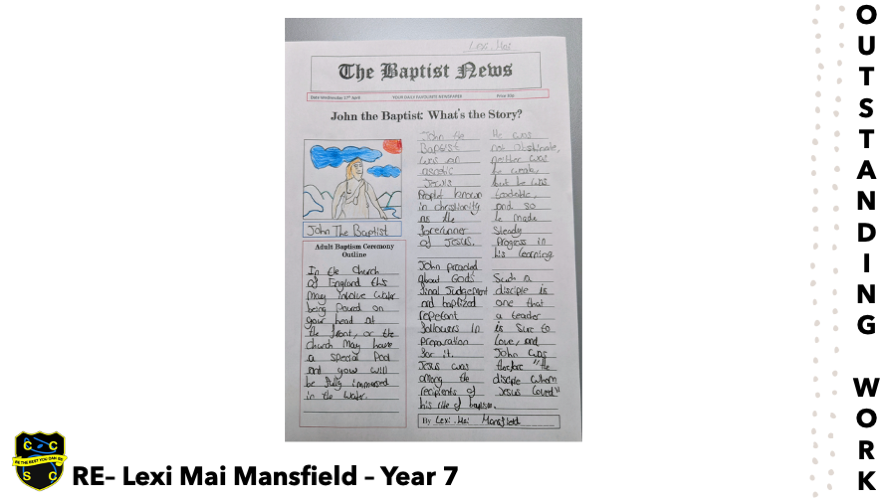 Lexi Mai
The Baptist News
YOUR DAILY FAVOURITE NEWSPAPER
John the Baptist: What's the Story?
John The Baptist
Adult Baptism Ceremony
Outline
In the Church
of England this
may involve water
being poured on
your head at
the front, or the
church may have
a special Pool
and you will
be fully immersed
in the water.
John the
Baptist
was an
ascetic
Jewish
Prophet known
in christianity
as the
forerunner
of JESUS.
John preached
about God's
final Judgement
and baptized
repentant
followers in
preparation
for it.
Jesus was
among the
recipients of
his rite of baptism.
He was
not obstinate,
neither was
he weak,
but he was
teachable,
and so
he made
steady
Progress in
his learning
Such a
disciple is
one that
a teacher
is sure to
love, and
John was
therefore "the
disciple whom
Jesus loved"
By Lexi-Mai Mansfield
C C
BE THE BEST YOU CAN BE
S C
RE– Lexi Mai Mansfield – Year 7
OUTSTANDING WORK